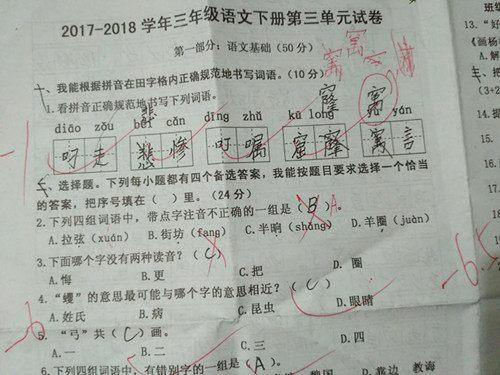 2017-2018学年三年级语文下册第三单元试卷
第一部分:语文基础(50分)
一、我能根据拼音在田字格内正确规范地书写词语。(10分)
1.看拼音正确规范地书写下列词语。
悲 窿 寓
diāo zǒu bēi cǎn dīng zhǔ kū long yù yán
叼走 悲惨 叮嘱 窟窿 寓言
二、选择题。下列每小题都有四个备选答案,我能按题目要求选择一个恰当
的答案,把序号填在( )里。(24分)
2.下列四组词语中,带点字注音不正确的一组是(B)。A
A.拉弦(xuán) B.街坊(fang) C.半晌(shǎng) D.羊圈(juàn)
3.下面哪个字没有两种读音?(C)
A.悔 B.更 C.把 D.圈
4.“蠼”的意思最可能与哪个字的意思相近?(C)
A.姓氏 B.病 C.昆虫 D.眼睛
5.“弓”共(C)画。
A.一 B.二 C.三 D.四
6.下列四组词语中,有错别字的一组是(A)。
教诲
-1
-6
-6.5
班级
13.“好
三、把